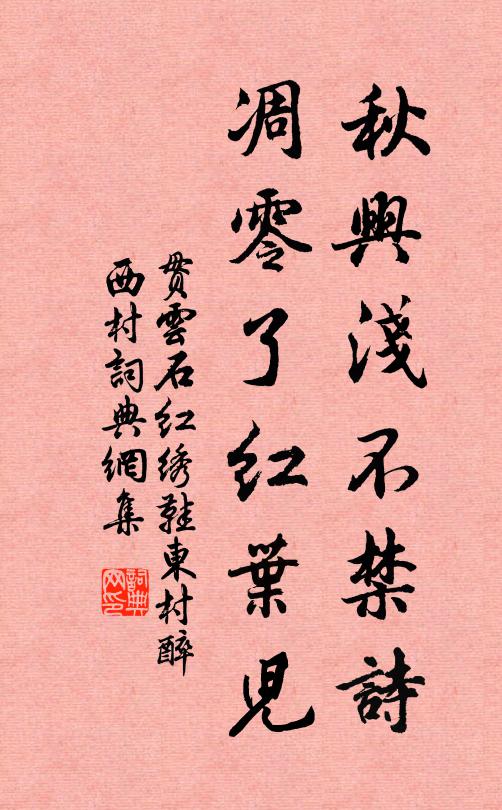 秋興淺不禁詩
凋零了紅葉兒
貫雲石紅绣鞋東村醉
西村詞典網集
詞典网印